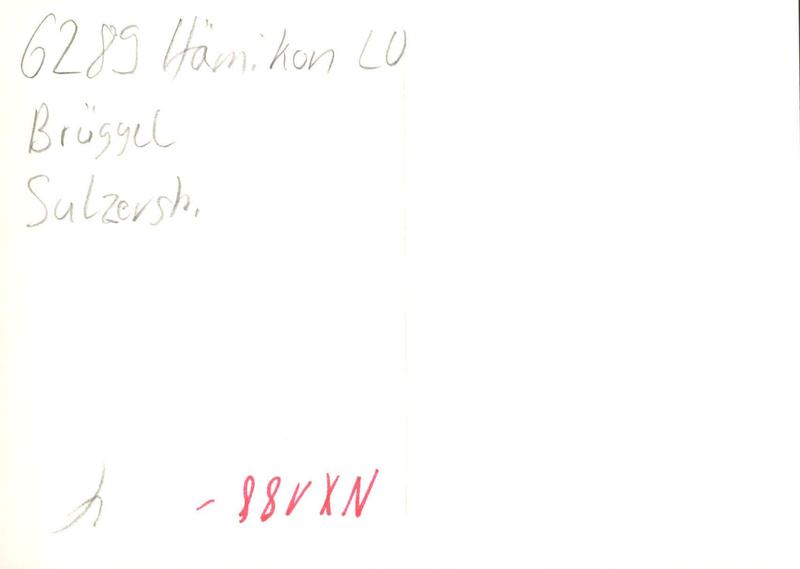 6289 Hämikon LU
Brüggel
Sulzerstr.
h
- 88VXN